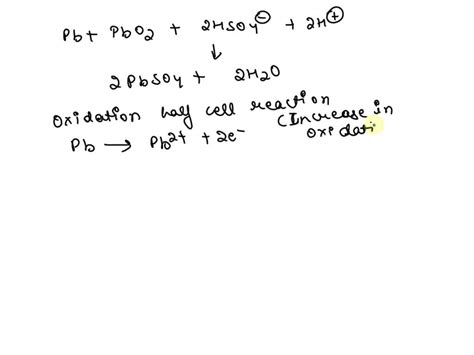 Pb + PbO2 + 2HSO4⊖ + 2H⊕
↓
2PbSO4 + 2H2O
Oxidation half cell reaction
Pb → Pb2+ + 2e- (Increase in
oxidati